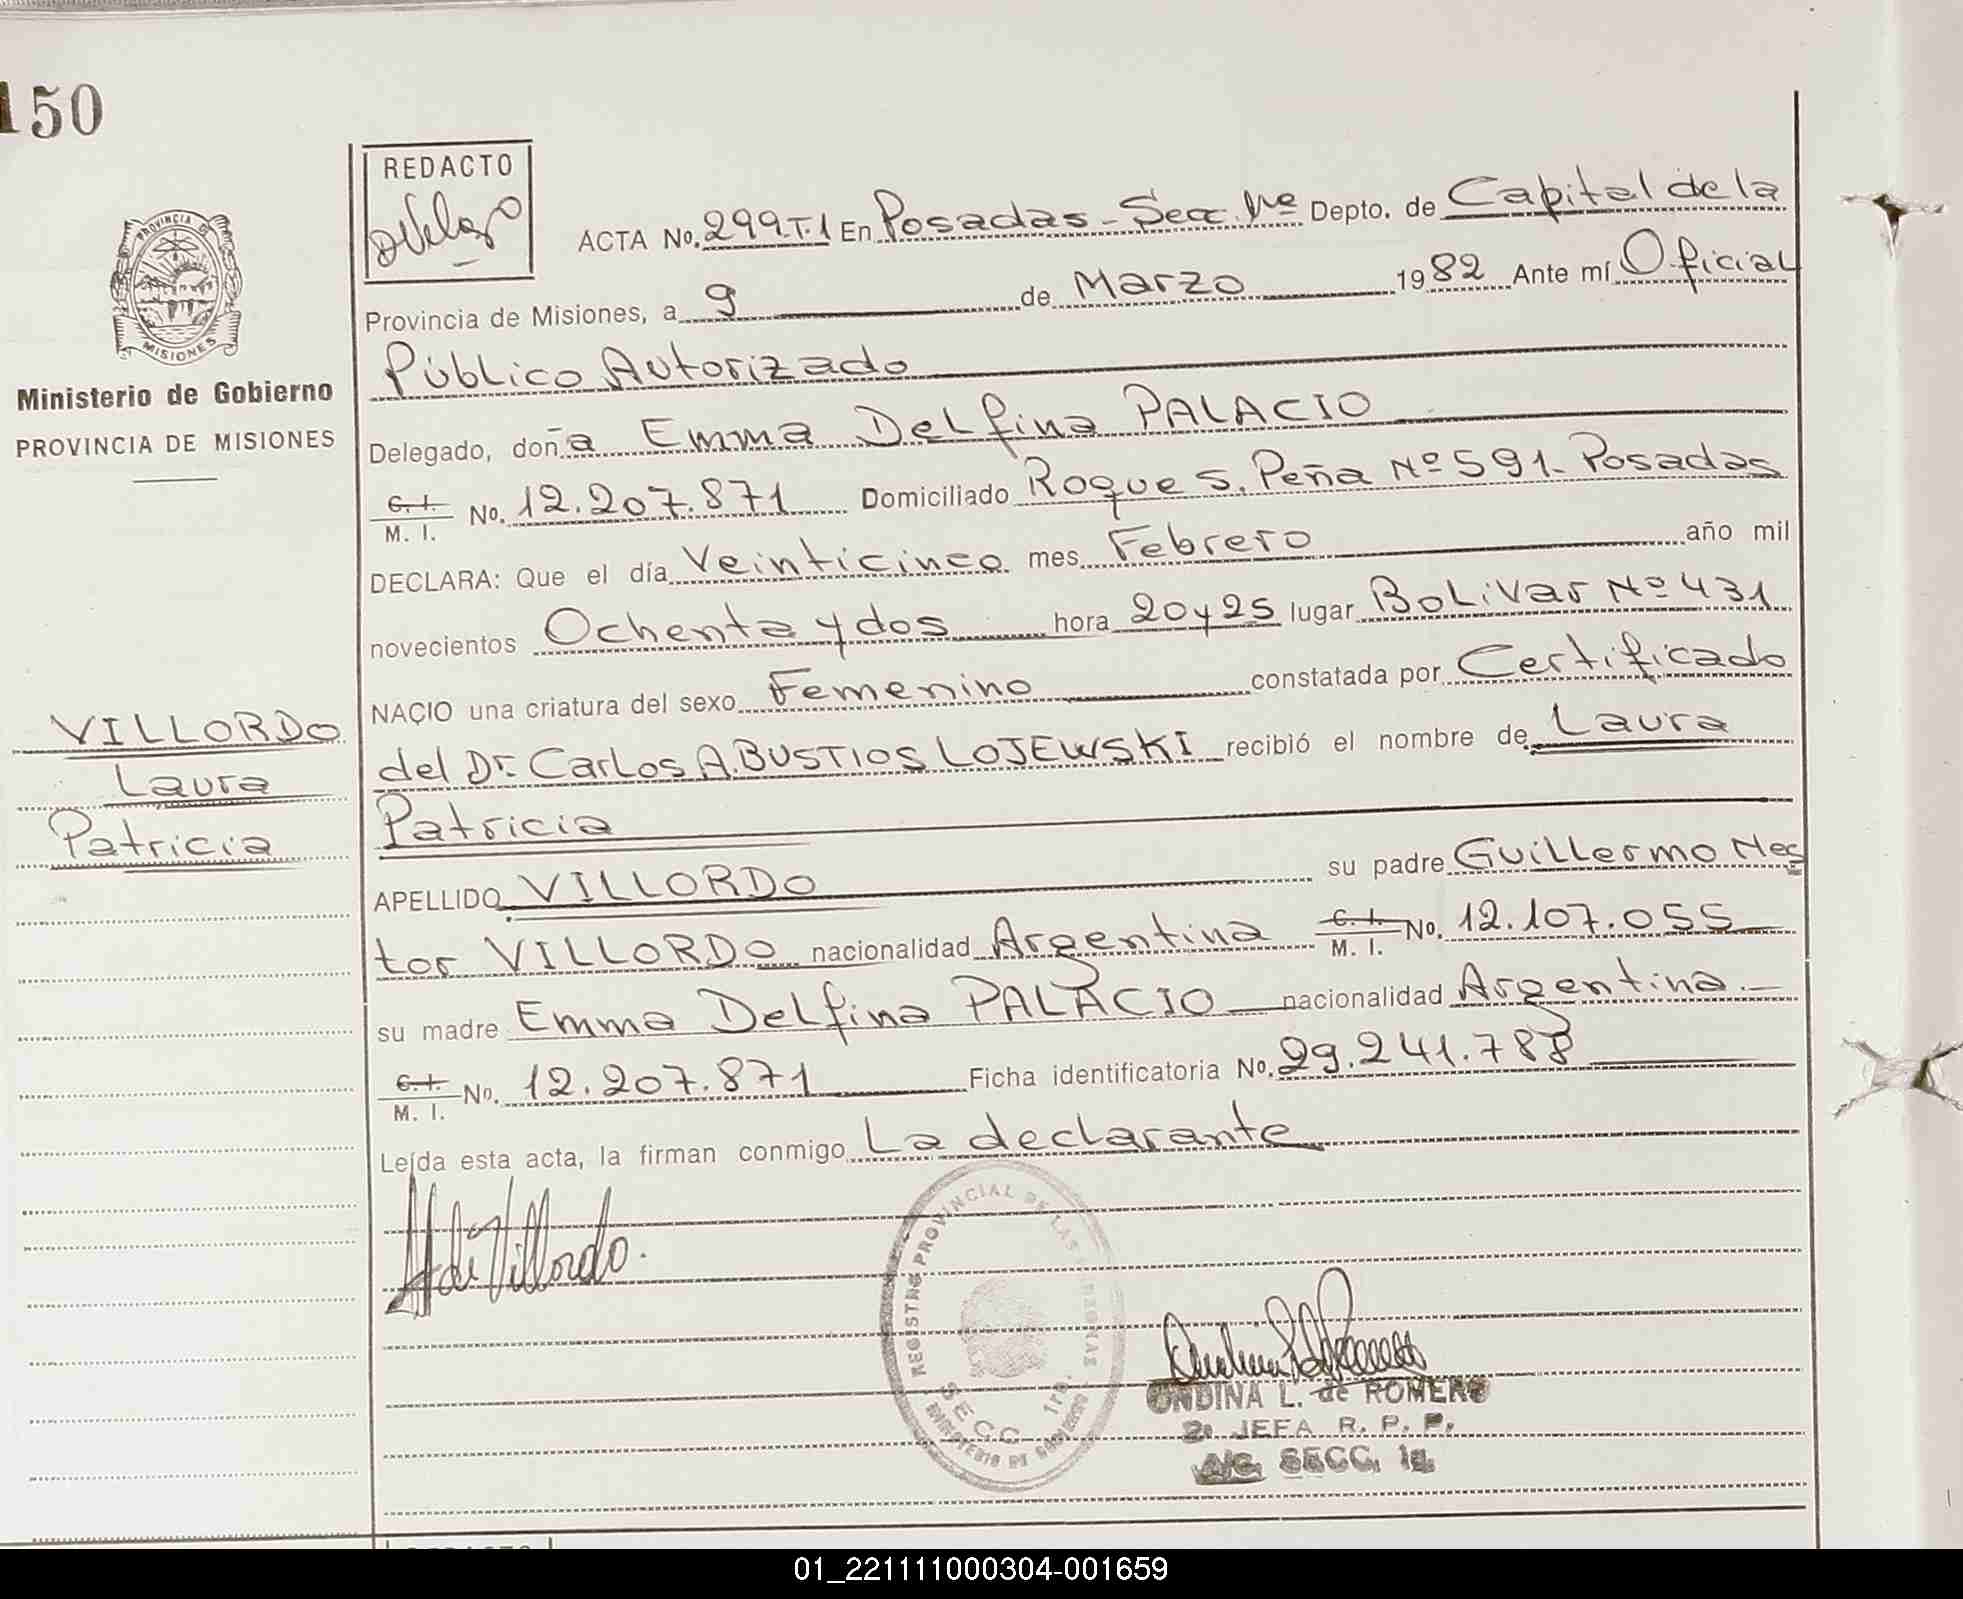 150
REDACTO
PROVINCIA DE
MISIONES
Ministerio de Gobierno
PROVINCIA DE MISIONES
VILLORDO
Laura
Patricia
ACTA No. 299 T.1 En Posadas - Secc. 1ra Depto. de Capital de la
Provincia de Misiones, a 9 de Marzo 1982 Ante mí Oficial
Público Autorizado
Delegado, doña Emma Delfina PALACIO
C. I. / M. I. No. 12.207.871 Domiciliado Roque S. Peña Nº 591 - Posadas
DECLARA: Que el día Veinticinco mes Febrero año mil
novecientos Ochenta y dos hora 20 y 25 lugar Bolivar Nº 431
NACIO una criatura del sexo Femenino constatada por Certificado
del Dr. Carlos A. BUSTIOS LOJEWSKI recibió el nombre de Laura
Patricia
APELLIDO VILLORDO su padre Guillermo Nes
tor VILLORDO nacionalidad Argentina C. I. / M. I. No. 12.107.055
su madre Emma Delfina PALACIO nacionalidad Argentina.-
C. I. / M. I. No. 12.207.871 Ficha identificatoria No. 29.241.788
Leída esta acta, la firman conmigo La declarante
de Villordo.
REGISTRO PROVINCIAL DE LAS PERSONAS
SECC. 1ra.
MINISTERIO DE GOBIERNO
ONDINA L. de ROMERO
2º JEFA R. P. P.
A/C. SECC. 1a.
01_221111000304-001659